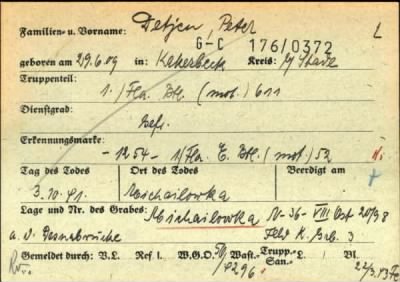 Familien- u. Vorname: Detjen, Peter L
G-C 176/0372
geboren am 29.6.09 in: Kakerbeck Kreis: Stade
Truppenteil:
1./Fla. Btl. (mot.) 611
Dienstgrad:
Gefr.
Erkennungsmarke:
- 1254 - 1/Fla. E. Btl. (mot.) 52
Tag des Todes Ort des Todes Beerdigt am
3.10.41. Michailowka
Lage und Nr. des Grabes: Michailowka N-36-VIII Ost
a. d. Desnabrücke Feld K. Grab. 3
Gemeldet durch: V.L. Ref I. W.G.O. Wast.- Trupp.- San.- L. Vl.